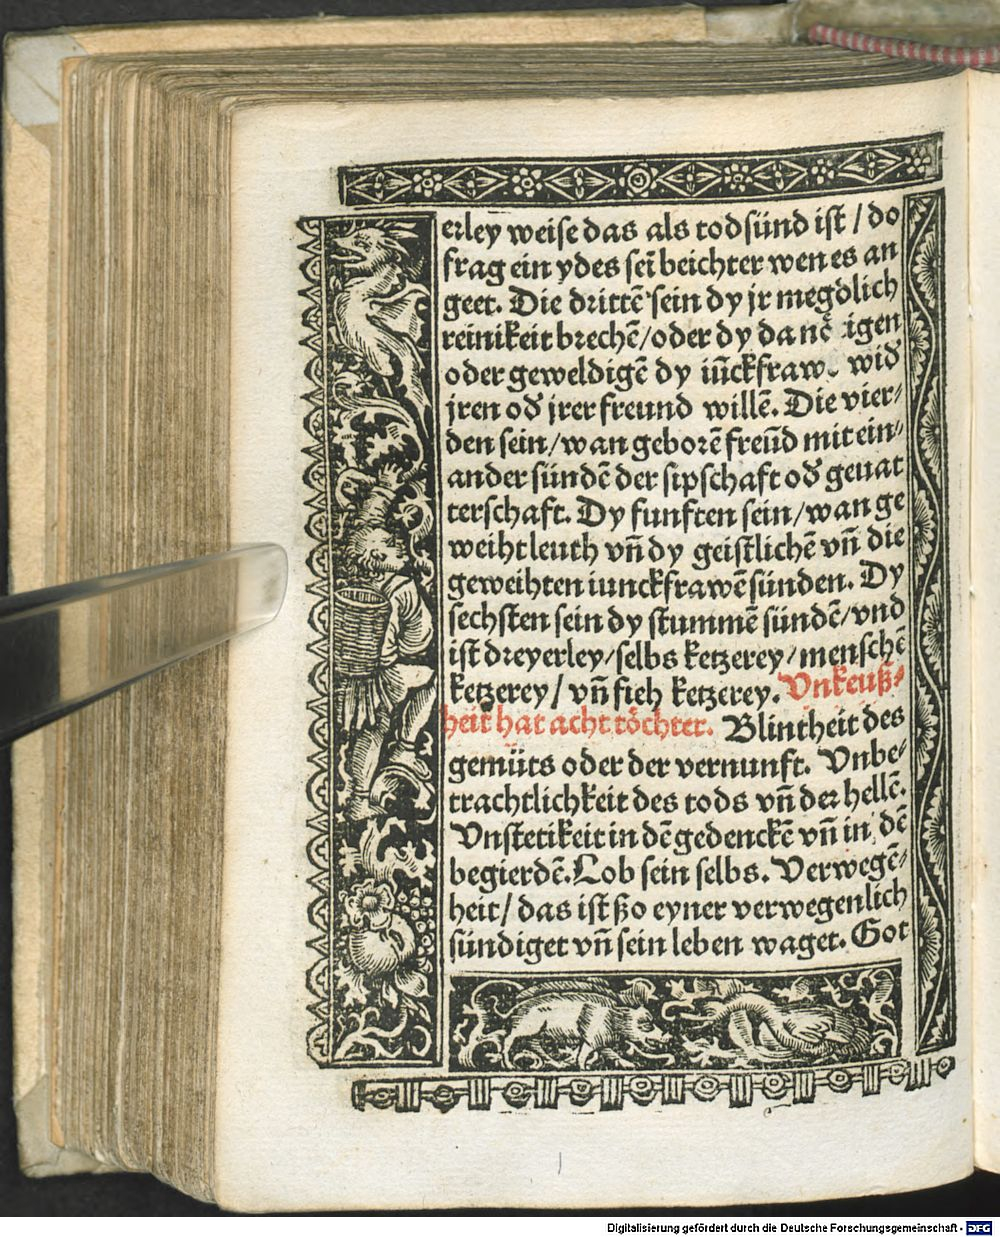 erley weise das als todsünd ist / do
frag ein ydes seī beichter wen es an
geet. Die drittē sein dy jr megdlich
reinikeit brechē/oder dy da igen
oder geweldigē dy iūckfraw wid̉
jren od̉ jrer freund willē. Die vier⸗
den sein/wan geborē freūd mit ein⸗
ander sündē der sipschaft od̉ geuat
terschaft. Dy funften sein/wan ge
weiht leuth vn̄ dy geistlichē vn̄ die
geweihten iunckfrawē sünden. Dy
sechsten sein dy stummē sündē/vnd
ist dreyerley/selbs ketzerey/menschē
ketzerey/ vn̄ fieh ketzerey. Vnkeuß⸗
heit hat acht töchter. Blintheit des
gemüts oder der vernunft. Vnbe⸗
trachtlichkeit des tods vn̄ der hellē.
Vnstetikeit in dē gedenckē vn̄ in dē
begierdē. Lob sein selbs. Verwegē⸗
heit/ das ist ßo eyner verwegenlich
sündiget vn̄ sein leben waget. Got
Digitalisierung gefördert durch die Deutsche Forschungsgemeinschaft - DFG